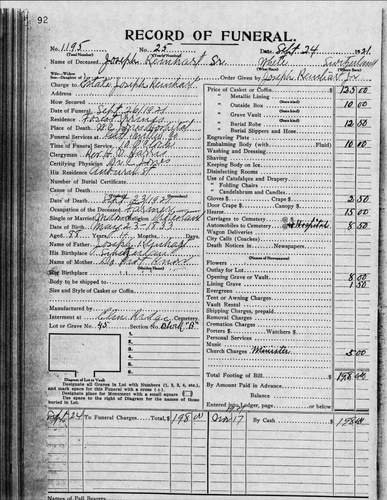 92
RECORD OF FUNERAL.
No. 1195 No. 25 Date Sept 24 1921
Name of Deceased Joseph Reinhart Sr. White Switzerland
Charge to Estate Joseph Reinhart Order Given by Joseph Reinhart Jr
Address
How Secured
Date of Funeral Sept 26 1921
Residence Forest Springs
Place of Death
Funeral Services at
Time of Funeral Service
Clergyman Rev.
Certifying Physician
His Residence
Number of Burial Certificate
Cause of Death
Date of Death Sept 23 1921
Occupation of the Deceased Farmer
Single or Married
Date of Birth May 23-1833
Aged 88 Years 4 Months. Days
Name of Father Joseph Reinhart
His Birthplace Switzerland
Name of Mother Do Not Know
(Maiden Name)
Her Birthplace
Body to be shipped to
Size and Style of Casket or Coffin
Manufactured by
Interment at Elm Ridge Cemetery
Lot or Grave No. 45 Section No. Block "B"
1.
2.
3.
4.
5.
6.
Diagram of Lot or Vault
Designate all Graves in Lot with Numbers (1, 2, 3, 4, etc.), and mark space for this Funeral with a cross (+).
Designate place for Monument with a small square
Use space to the right of Diagram for the names of those buried in Lot.
Price of Casket or Coffin 125.00
" Metallic Lining
" Outside Box 10 00
" Grave Vault
" Burial Robe 12 50
" Burial Slippers and Hose
Engraving Plate
Embalming Body (with Fluid) 10.00
Washing and Dressing
Shaving
Keeping Body on Ice
Disinfecting Rooms
Use of Catafalque and Drapery
" Folding Chairs
" Candelabrum and Candles
Gloves $ Crape $ 2 50
Door Crape Canopy
Hearse 15 00
Carriages to Cemetery
Automobiles to Cemetery Hospital 8.50
Wagon Deliveries
City Calls (Coaches)
Death Notices in Newspapers
Flowers
Outlay for Lot
Opening Grave or Vault 8 00
Lining Grave 1 50
Evergreen
Tent or Awning Charges
Vault Rental
Shipping Charges, prepaid
Removal Charges
Cremation Charges
Porters $ Watchers $
Personal Services
Music
Church Charges Minister 5 00
Total Footing of Bill 198 00
By Amount Paid in Advance
Balance
Entered into Ledger, page or below.
Sept 24 To Funeral Charges Total, $ 198 00 17 By Cash 198 00
Names of Pall Bearers